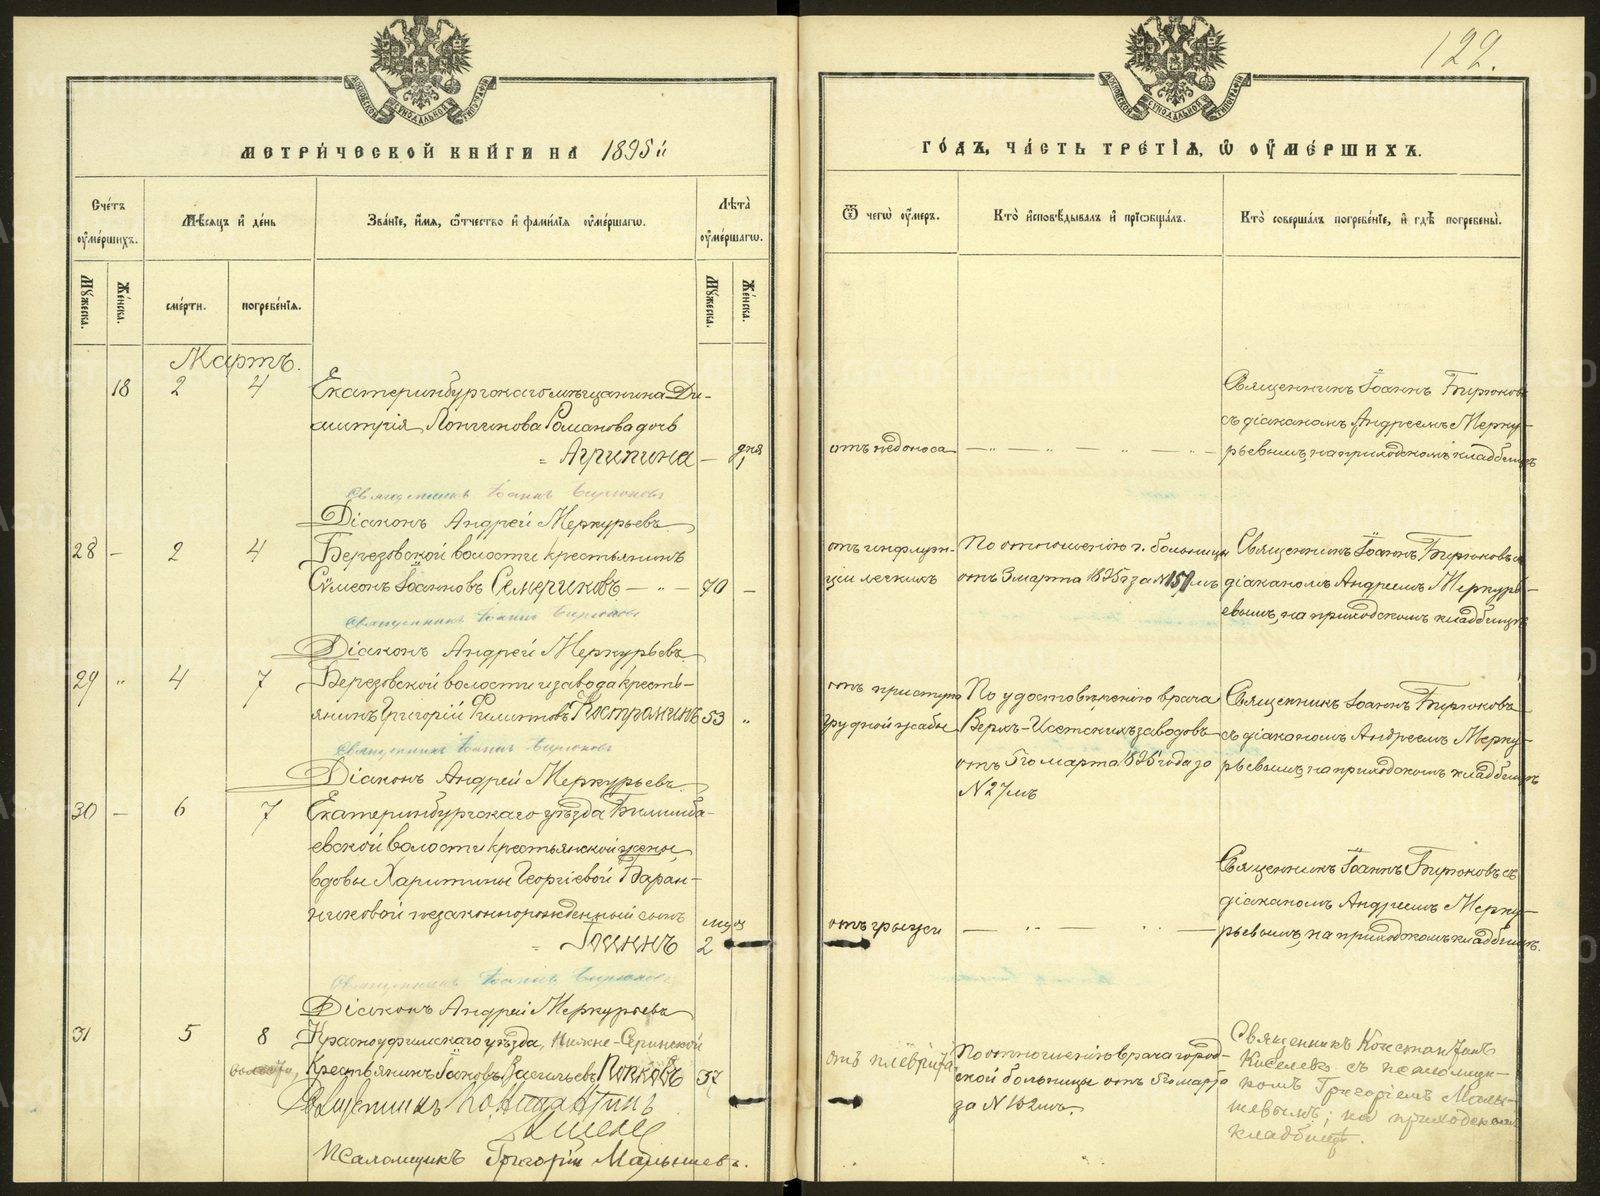 122.
МЕТРИ́ЧЕСКОЙ КНИ́ГИ НА 1895й
ГО́ДЪ, ЧА́СТЬ ТРЕ́ТІѦ, Ѡ҆ ОУ҆МЕ́РШИХЪ.
Сче́тъ оу҆ме́ршихъ.
Мѣ́сяцъ и҆ де́нь
Зва́ніе, и҆́мя, ѻ҆́тчество и҆ фами́лія оу҆ме́ршагѡ.
Лѣта̀ оу҆ме́ршагѡ.
Ѿ чегѡ̀ оу҆́меръ.
Кто̀ и҆сповѣ́дывалъ и҆ прїѡбща́лъ.
Кто̀ соверша́лъ погребе́ніе, и҆ гдѣ̀ погребены̀.
Му́жеска.
Же́нска.
сме́рти.
погребе́нія.
Му́жеска.
Же́нска.
Мартъ.
18 2 4 Екатеринбургскаго мѣщанина Ди-
митрія Лончинова Романова дочь
Агрипина — 1 дня
отъ недоноса
Священникъ Іоаннъ Бирюковъ
съ діакономъ Андреемъ Мерку-
рьевымъ, на приходскомъ кладбищѣ
Священникъ Іоаннъ Бирюковъ
Діаконъ Андрей Меркурьевъ
28 — 2 4 Березовской волости крестьянинъ
Сѵмеонъ Іоанновъ Семериковъ — " — 70 —
отъ инфлуэн-
ціи легкихъ
По отношенію г. больницы
отъ 3 марта 1895 г за №151мъ
Священникъ Іоаннъ Бирюковъ съ
діакономъ Андреемъ Меркурь-
евымъ, на приходскомъ кладбищѣ
Священникъ Іоаннъ Бирюковъ
Діаконъ Андрей Меркурьевъ
29 " 4 7 Березовской волости и завода кресть-
янинъ Григорій Филиповъ Костранинъ 53 "
отъ приступа
грудной жабы
По удостовѣренію врача
Верхъ-Исетскихъ заводовъ
отъ 5го марта 1895 года за
№ 27мъ
Священникъ Іоаннъ Бирюковъ
съ діакономъ Андреемъ Мерку-
рьевымъ, на приходскомъ кладбищѣ
Священникъ Іоаннъ Бирюковъ
Діаконъ Андрей Меркурьевъ
30 — 6 7 Екатеринбургскаго уѣзда Билимба-
евской волости крестьянской жены
вдовы Харитины Георгіевой Баран-
никовой незаконнорожденный сынъ
Іоаннъ 2
отъ грыжи
Священникъ Іоаннъ Бирюковъ съ
діакономъ Андреемъ Мерку-
рьевымъ, на приходскомъ кладбищѣ.
Священникъ Іоаннъ Бирюковъ
Діаконъ Андрей Меркурьевъ
31 5 8 Красноуфимскаго уѣзда, Нижне-Сергинской
волости, Крестьянинъ Іаковъ Васильевъ Попковъ 37
отъ плеврита
По отношенію врача город-
ской больницы отъ 7 марта
за № 162мъ
Священникъ Константинъ
Киселевъ съ псаломщи-
комъ Григоріемъ Малы-
шевымъ; на приходскомъ
кладбищѣ.
Священникъ Константинъ
Киселевъ
Псаломщикъ Григорій Малышевъ.